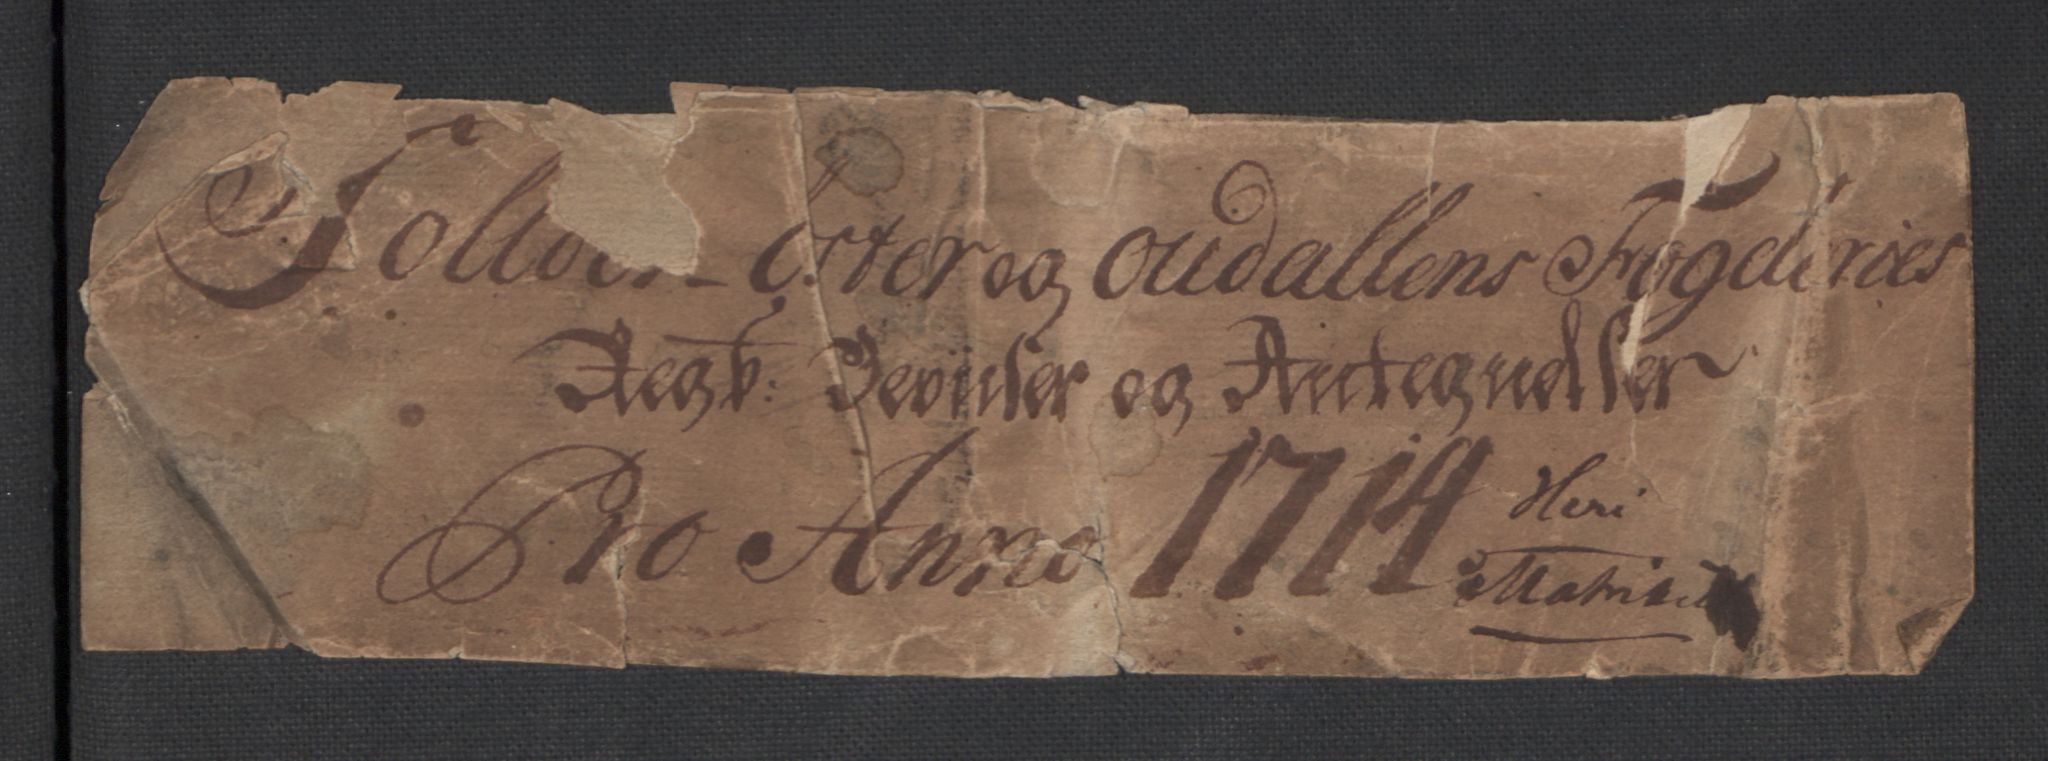 Soloer Öster og oudallens Fogderies
Regb: Reviser og Antegnelser
Pro Anno 1714 Heri
Matrikul